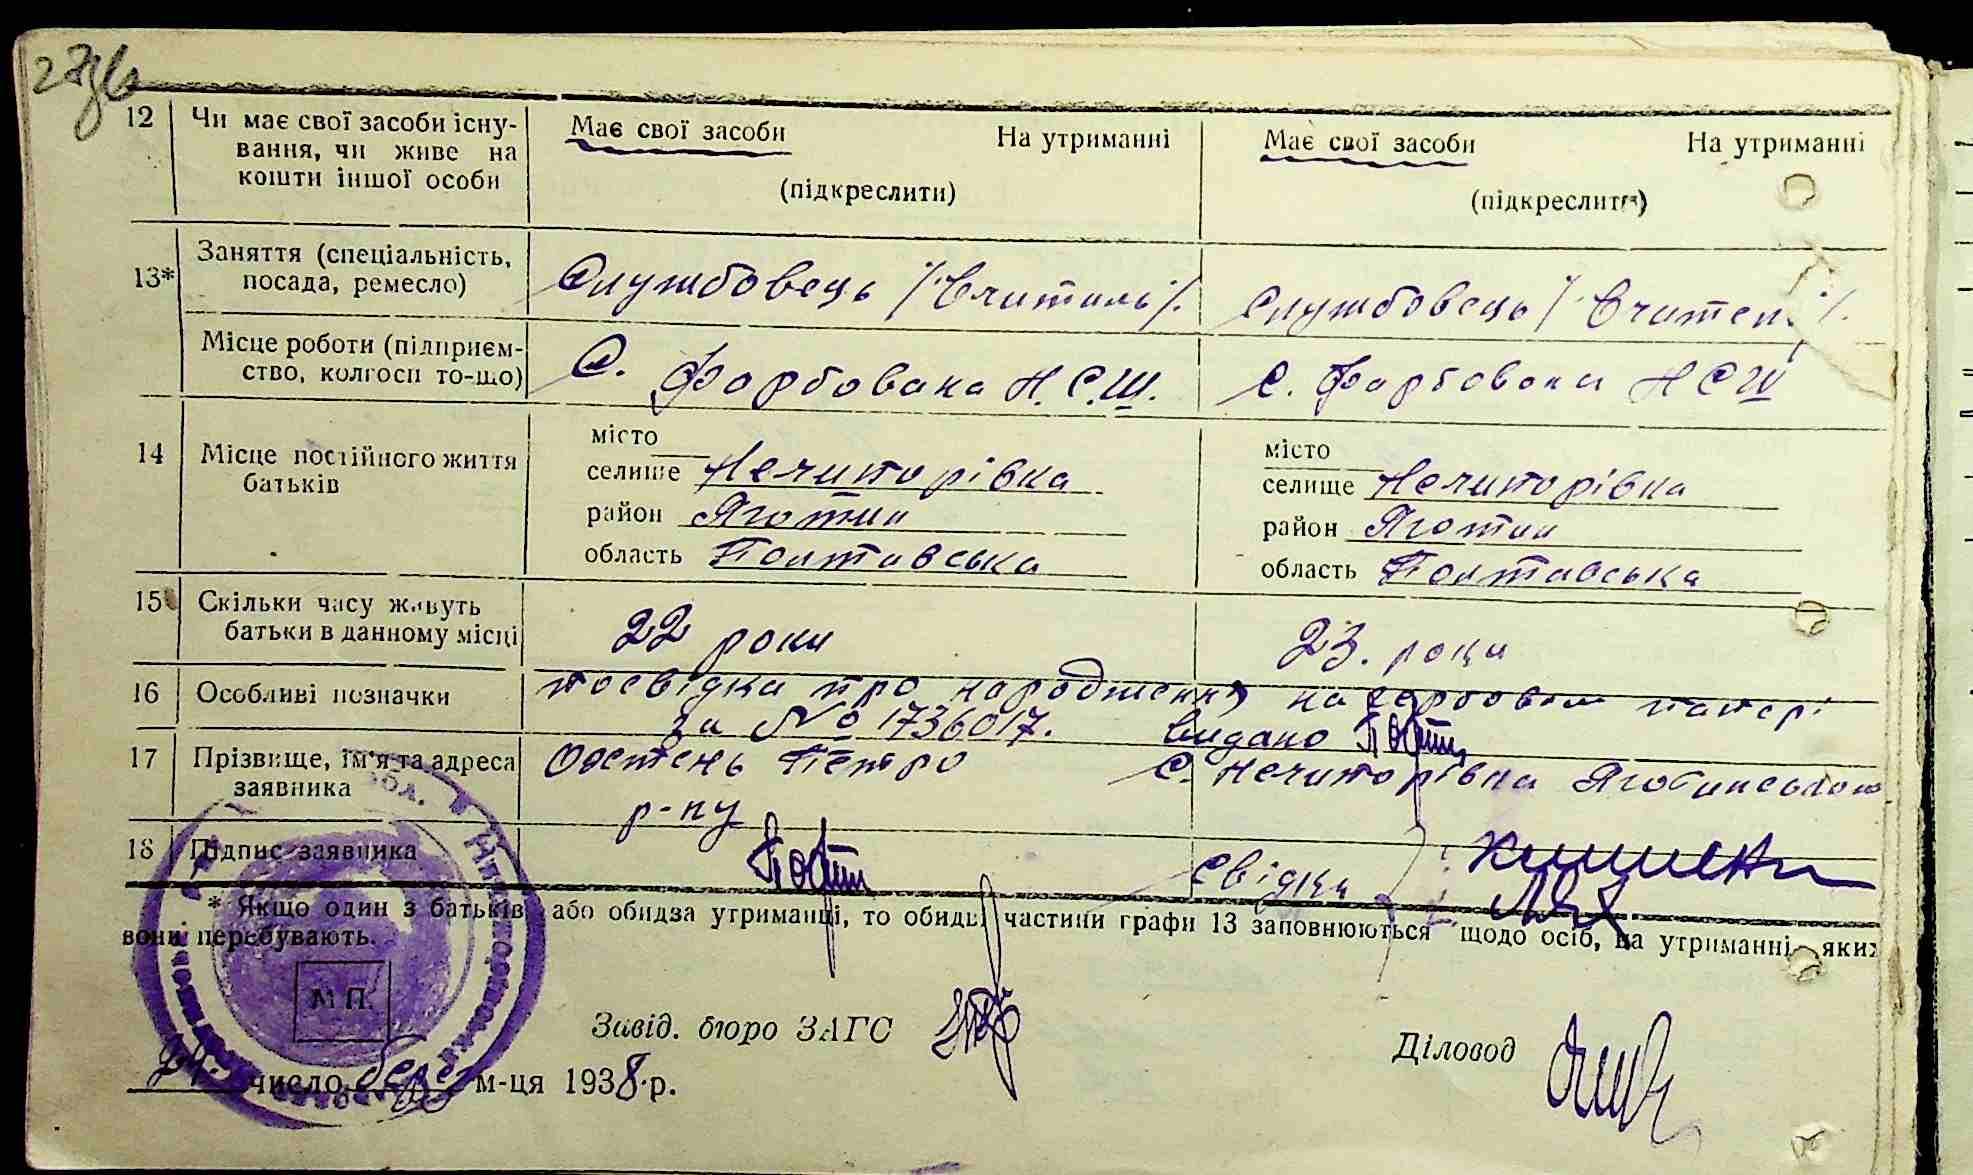 27зв
12 Чи має свої засоби існу- Має свої засоби На утриманні Має свої засоби На утриманні
вання, чи живе на
кошти іншої особи (підкреслити) (підкреслити)
13* Заняття (спеціальність, Службовець /Вчитиль/. Службовець /Вчитель/.
посада, ремесло)
Місце роботи (підприєм- С. Фарбована Н.С.Ш. С. Фарбована НСШ
ство, колгосп то-що)
14 Місце постійного життя місто місто
батьків селище Нечипорівка селище Нечипорівка
район Яготин район Яготин
область Полтавська область Полтавська
15 Скільки часу живуть 22 роки 23. роки
батьки в данному місці
16 Особливі позначки посвідка про народження на гербовом папері
за № 1736017. видано
17 Прізвище, ім'я та адреса Петро С. Нечипорівка Яготинського
заявника р-ну
18 Підпис заявника Свідки
* Якщо один з батьків або обидва утриманці, то обидві частини графи 13 заповнюються щодо осіб, на утриманні яких
вони перебувають.
М.П.
Завід. бюро ЗАГС Діловод
число м-ця 1938 р.